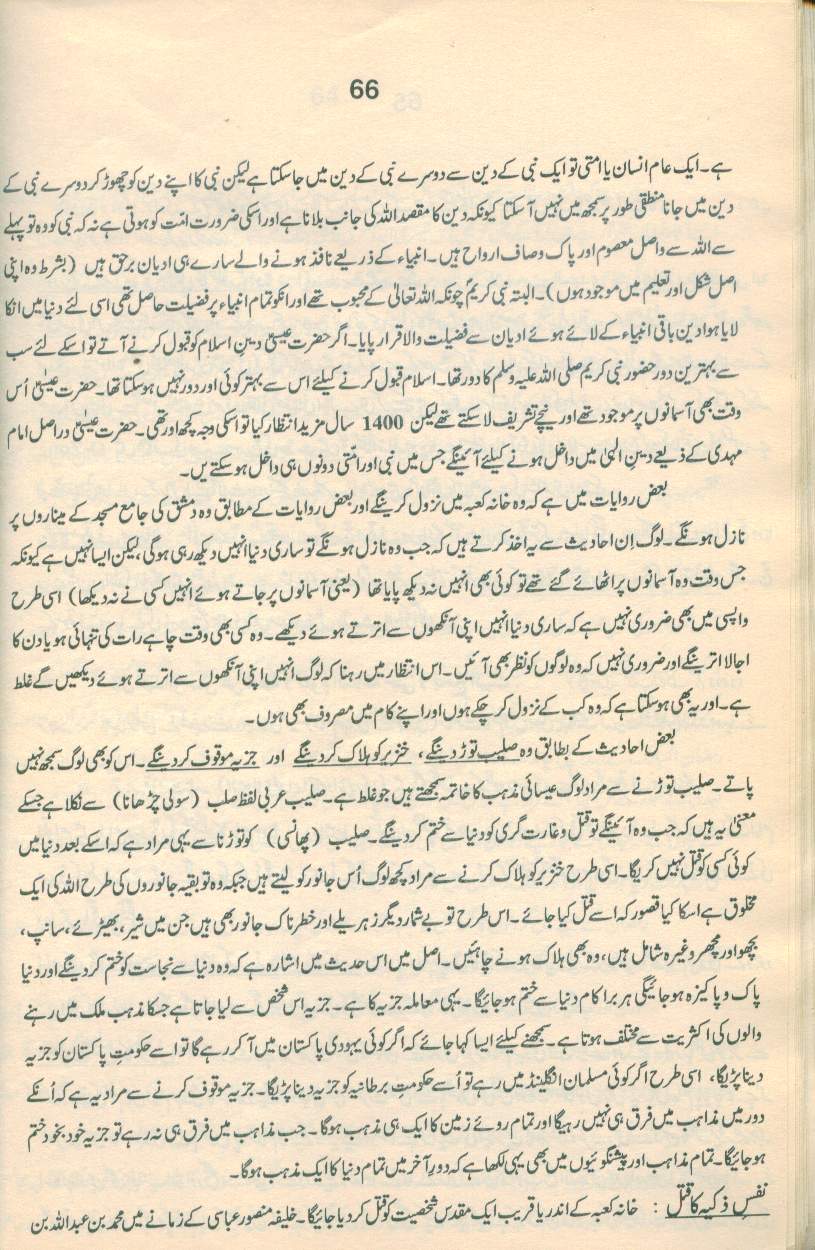 66
ہے۔ ایک عام انسان یا امتی تو ایک نبی کے دین سے دوسرے نبی کے دین میں جا سکتا ہے لیکن نبی کا اپنے دین کو چھوڑ کر دوسرے نبی کے
دین میں جانا منطقی طور پر سمجھ میں نہیں آ سکتا کیونکہ دین کا مقصد اللہ کی جانب بلانا ہے اور اسکی ضرورت امّت کو ہوتی ہے نہ کہ نبی کو وہ تو پہلے
سے اللہ سے واصل معصوم اور پاک و صاف ارواح ہیں۔ انبیاء کے ذریعے نافذ ہونے والے سارے ہی ادیان برحق ہیں (بشرط وہ اپنی
اصل شکل اور تعلیم میں موجود ہوں)۔ البتہ نبی کریمؐ چونکہ اللہ تعالیٰ کے محبوب تھے اور انکو تمام انبیاء پر فضیلت حاصل تھی اسی لئے دنیا میں انکا
لایا ہوا دین باقی انبیاء کے لائے ہوئے ادیان سے فضیلت والا قرار پایا۔ اگر حضرت عیسیٰؑ دینِ اسلام کو قبول کرنے آتے تو اسکے لئے سب
سے بہترین دور حضور نبی کریم صلی اللہ علیہ وسلم کا دور تھا۔ اسلام قبول کرنے کیلئے اس سے بہتر کوئی اور دور نہیں ہو سکتا تھا۔ حضرت عیسیٰؑ اُس
وقت بھی آسمانوں پر موجود تھے اور نیچے تشریف لا سکتے تھے لیکن 1400 سال مزید انتظار کیا تو اسکی وجہ کچھ اور تھی۔ حضرت عیسیٰؑ دراصل امام
مہدی کے ذریعے دینِ الٰہی میں داخل ہونے کیلئے آئینگے جس میں نبی اور امّتی دونوں ہی داخل ہو سکتے ہیں۔
بعض روایات میں ہے کہ وہ خانہ کعبہ میں نزول کرینگے اور بعض روایات کے مطابق وہ دمشق کی جامع مسجد کے میناروں پر
نازل ہونگے۔ لوگ اِن احادیث سے یہ اخذ کرتے ہیں کہ جب وہ نازل ہونگے تو ساری دنیا انہیں دیکھ رہی ہوگی، لیکن ایسا نہیں ہے کیونکہ
جس وقت وہ آسمانوں پر اٹھائے گئے تھے تو کوئی بھی انہیں نہ دیکھ پایا تھا (یعنی آسمانوں پر جاتے ہوئے انہیں کسی نے نہ دیکھا) اسی طرح
واپسی میں بھی ضروری نہیں ہے کہ ساری دنیا انہیں اپنی آنکھوں سے اترتے ہوئے دیکھے۔ وہ کسی بھی وقت چاہے رات کی تنہائی ہو یا دن کا
اجالا اترینگے اور ضروری نہیں کہ وہ لوگوں کو نظر بھی آئیں۔ اس انتظار میں رہنا کہ لوگ انہیں اپنی آنکھوں سے اترتے ہوئے دیکھیں گے غلط
ہے۔ اور یہ بھی ہو سکتا ہے کہ وہ کب کے نزول کر چکے ہوں اور اپنے کام میں مصروف بھی ہوں۔
بعض احادیث کے بطابق وہ صلیب توڑ دینگے، خنزیر کو ہلاک کر دینگے اور جزیہ موقوف کر دینگے۔ اس کو بھی لوگ سمجھ نہیں
پاتے۔ صلیب توڑنے سے مراد لوگ عیسائی مذہب کا خاتمہ سمجھتے ہیں جو غلط ہے۔ صلیب عربی لفظ صلب (سولی چڑھانا) سے نکلا ہے جسکے
معنیٰ یہ ہیں کہ جب وہ آئینگے تو قتل و غارت گری کو دنیا سے ختم کر دینگے۔ صلیب (پھانسی) کو توڑنا سے یہی مراد ہے کہ اسکے بعد دنیا میں
کوئی کسی کو قتل نہیں کریگا۔ اسی طرح خنزیر کو ہلاک کرنے سے مراد کچھ لوگ اُس جانور کو لیتے ہیں جبکہ وہ تو بقیہ جانوروں کی طرح اللہ کی ایک
مخلوق ہے اسکا کیا قصور کہ اسے قتل کیا جائے۔ اس طرح تو بے شمار دیگر زہریلے اور خطرناک جانور بھی ہیں جن میں شیر، بھیڑئے، سانپ،
بچھو اور مچھر وغیرہ شامل ہیں، وہ بھی ہلاک ہونے چاہئیں۔ اصل میں اس حدیث میں اشارہ ہے کہ وہ دنیا سے نجاست کو ختم کر دینگے اور دنیا
پاک و پاکیزہ ہو جائیگی ہر برا کام دنیا سے ختم ہو جائیگا۔ یہی معاملہ جزیہ کا ہے۔ جزیہ اس شخص سے لیا جاتا ہے جسکا مذہب ملک میں رہنے
والوں کی اکثریت سے مختلف ہوتا ہے۔ سمجھنے کیلئے ایسا کہا جائے کہ اگر کوئی یہودی پاکستان میں آ کر رہے گا تو اسے حکومتِ پاکستان کو جزیہ
دینا پڑیگا، اسی طرح اگر کوئی مسلمان انگلینڈ میں رہے تو اُسے حکومتِ برطانیہ کو جزیہ دینا پڑیگا۔ جزیہ موقوف کرنے سے مراد یہ ہے کہ اُنکے
دور میں مذاہب میں فرق ہی نہیں رہیگا اور تمام روئے زمین کا ایک ہی مذہب ہوگا۔ جب مذاہب میں فرق ہی نہ رہے تو جزیہ خود بخود ختم
ہو جائیگا۔ تمام مذاہب اور پیشنگوئیوں میں بھی یہی لکھا ہے کہ دورِ آخر میں تمام دنیا کا ایک مذہب ہوگا۔
نفسِ ذکیہ کا قتل : خانہ کعبہ کے اندر یا قریب ایک مقدس شخصیت کو قتل کر دیا جائیگا۔ خلیفہ منصور عباسی کے زمانے میں محمد بن عبداللہ بن